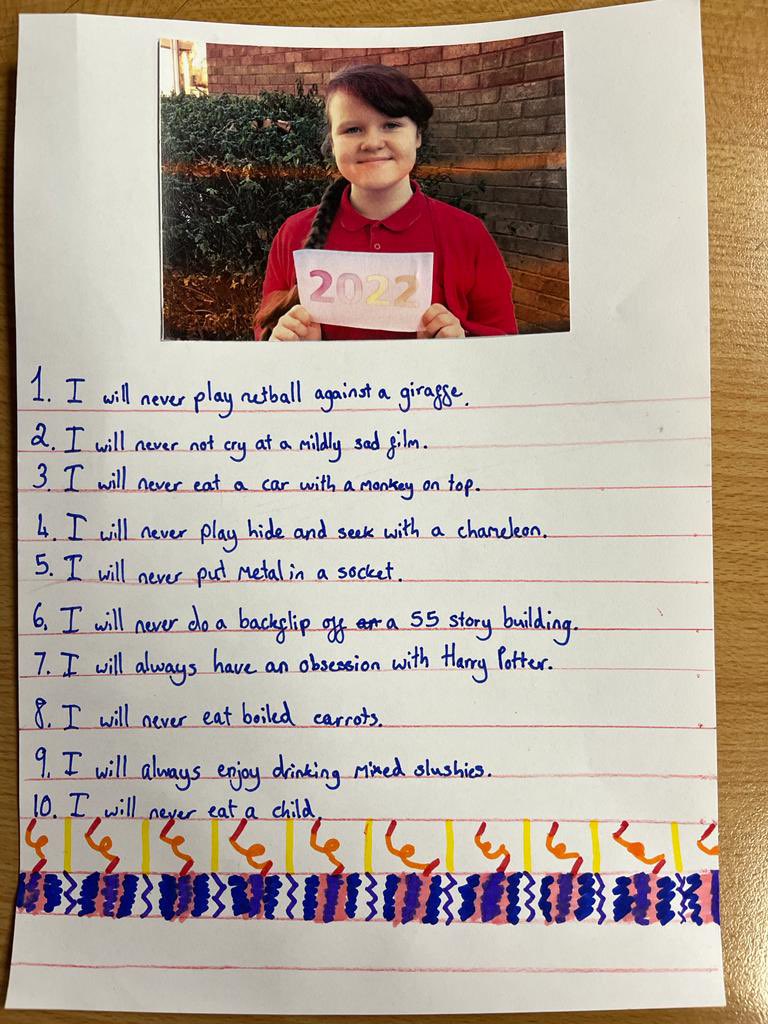 2022
1. I will never play netball against a giraffe.
2. I will never not cry at a mildly sad film.
3. I will never eat a car with a monkey on top.
4. I will never play hide and seek with a chameleon.
5. I will never put metal in a socket.
6. I will never do a backflip off a 55 story building.
7. I will always have an obsession with Harry Potter.
8. I will never eat boiled carrots.
9. I will always enjoy drinking mixed slushies.
10. I will never eat a child.